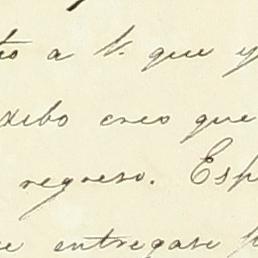 to a V. que y
xibo creo que
regreso. Esp
e entregase p